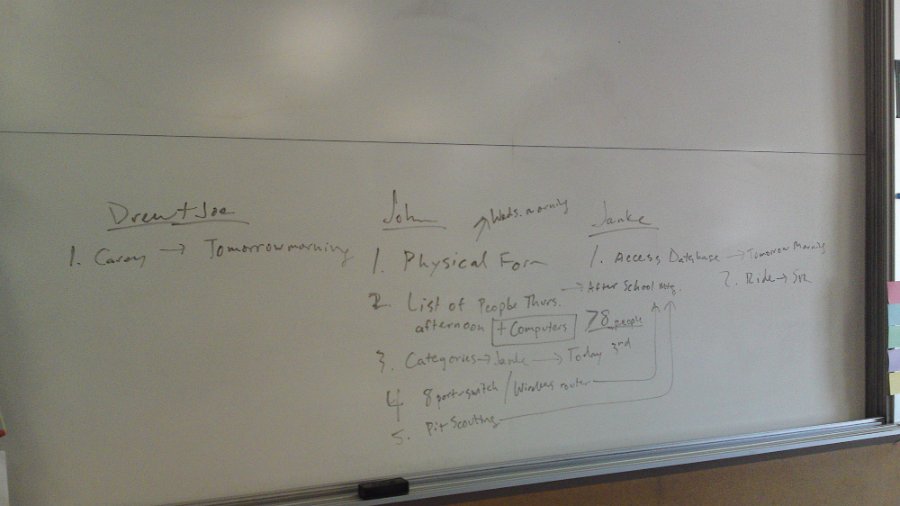 Drew + Joe
1. → Tomorrow morning
John
1. Physical Form → Weds. morning
2. List of People Thurs. → After School Mtg.
afternoon + Computers >8 people
3. Categories → Janke → Today 2nd
4 8 port switch / Wireless router
5. Pit Scouting
Janke
1. Access Database → Tomorrow Morning
2. Ride →